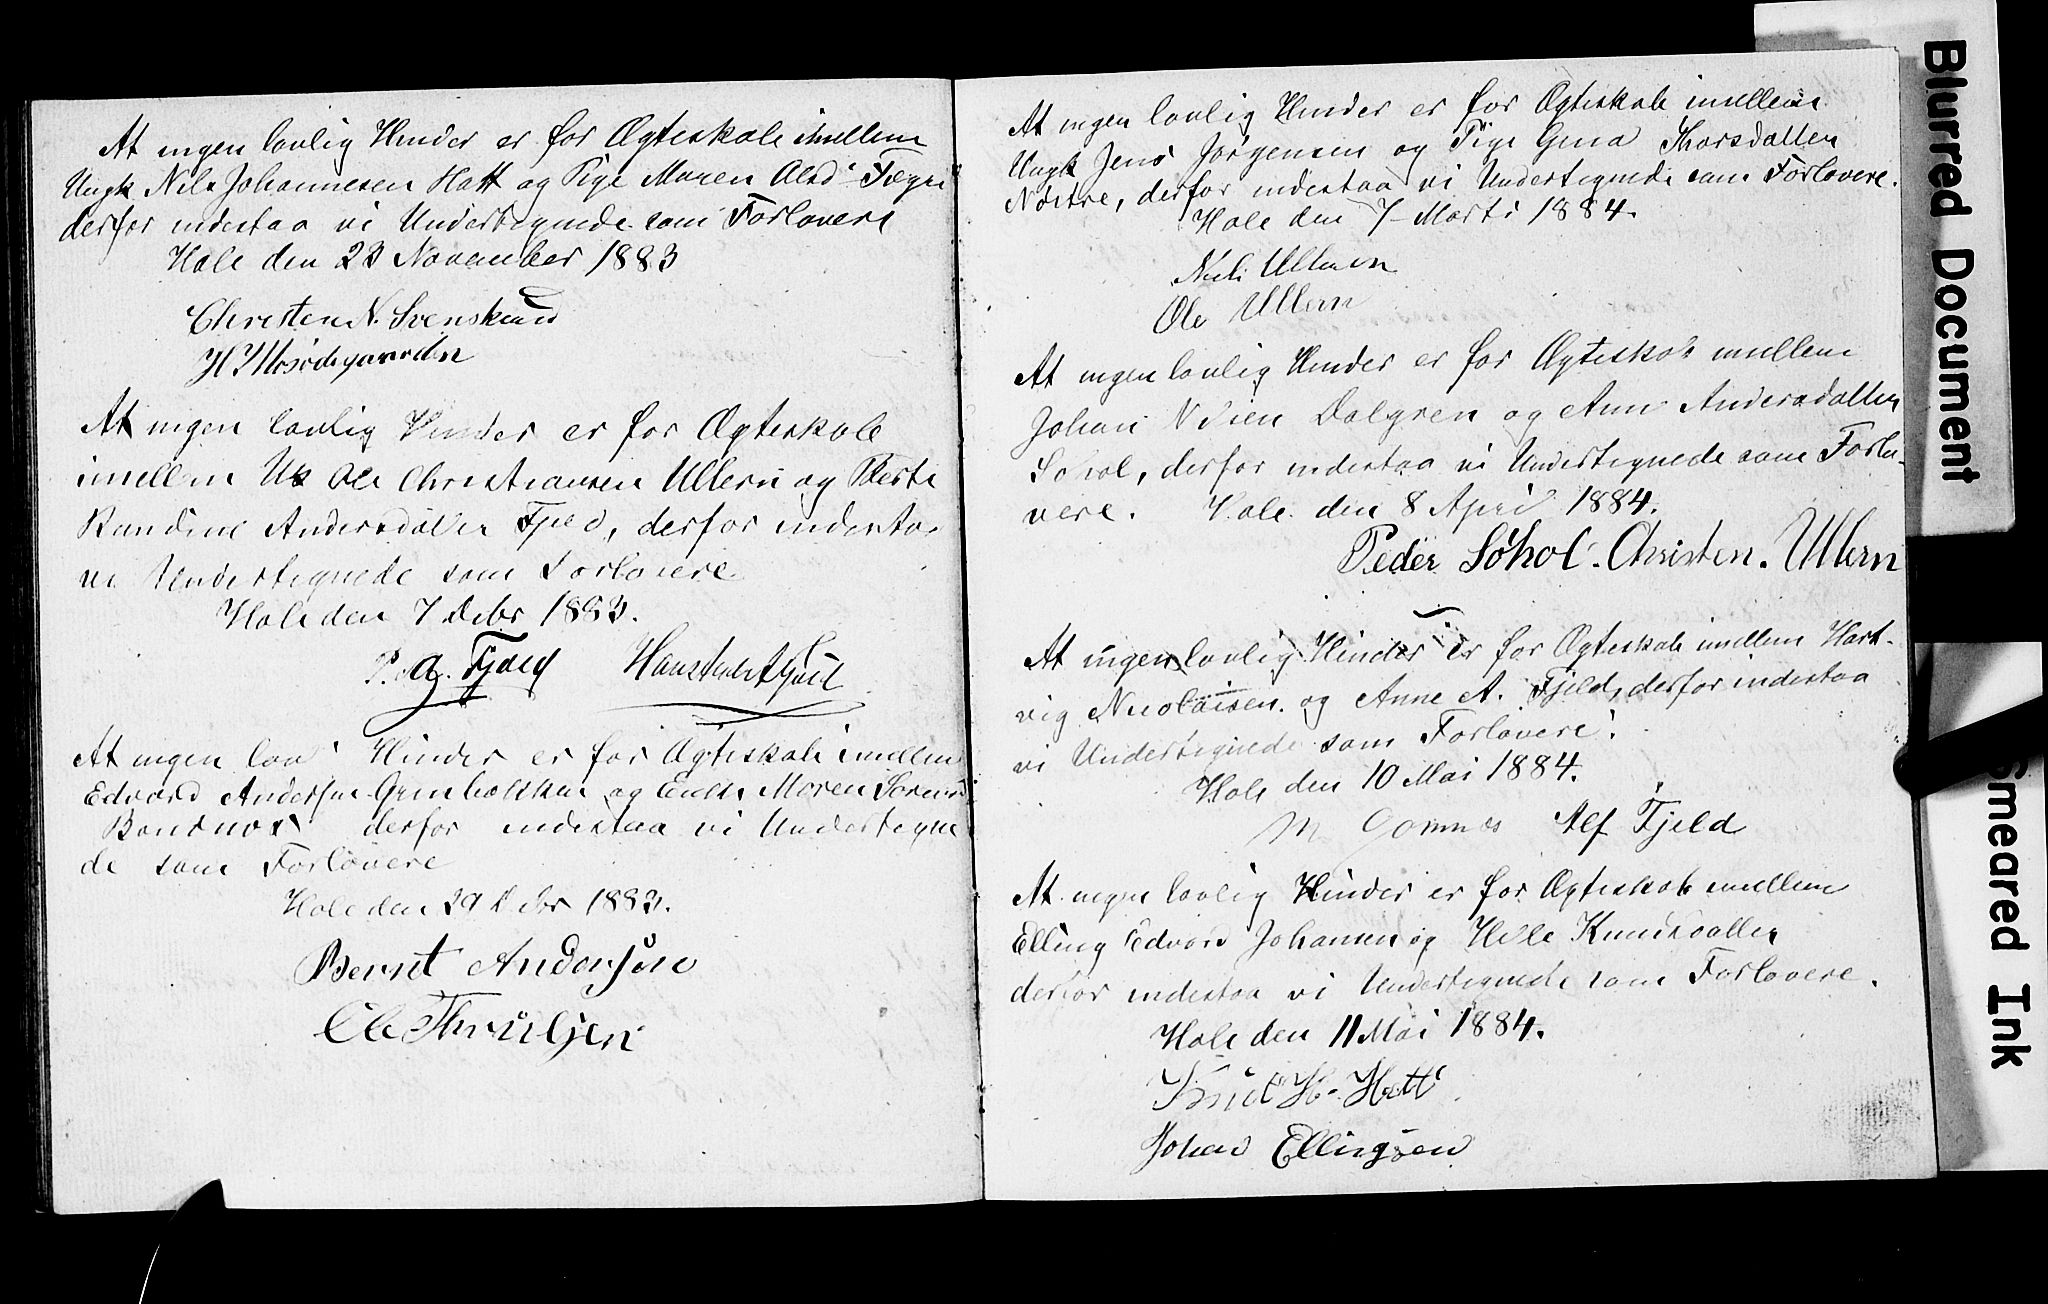 At ingen lovlig Hinder er for Ægteskab imellem
Ungk Nils Johannesen Hatt og Pige Maren Olsd
derfor indestaa vi Undertegnede som Forlovere
Hole den 23 November 1883
Christen N. Svensrud
At ingen lovlig Hinder er for Ægteskab
imellem Uk Ole Christiansen Ullern og
Randine Andersdatter Fjeld, derfor indestaa
vi Undertegnede som Forlovere
Hole den 7 Decbr 1883.
P. A. Fjeld
At ingen lov Hinder er for Ægteskab imellem
Edvard Andersen og Enke Maren
derfor indestaa vi Undertegne
de som Forlovere
Hole den 29 Debr 1883.
Bernt Andersen
Ole
At ingen lovlig Hinder er for Ægteskab imellem
Ungk Jens Jørgensen og Pige Gina Thorsdatter
derfor indestaa vi Undertegnede som Forlovere.
Hole den 7 Marts 1884.
Ullern
Ole Ullern
At ingen lovlig Hinder er for Ægteskab imellem
Johan Dalgren og Ann Andersdatter
Søhol, derfor indestaa vi Undertegnede som Forlo-
vere. Hole den 8 April 1884.
Peder Søhol. Christen. Ullern
At ingen lovlig Hinder er for Ægteskab imellem Hart-
vig Nicolaisen og Anne A. Fjeld, derfor indestaa
vi Undertegnede som Forlovere.
Hole den 10 Mai 1884.
M Gomnæs Alf Fjeld
At ingen lovlig Hinder er for Ægteskab imellem
Elling Edvard Johansen og Helle Knudsdatter
derfor indestaa vi Undertegnede som Forlovere.
Hole den 11 Mai 1884.
Knud H. Hatt
Johan Ellingsen
Blurred Document
Smeared Ink